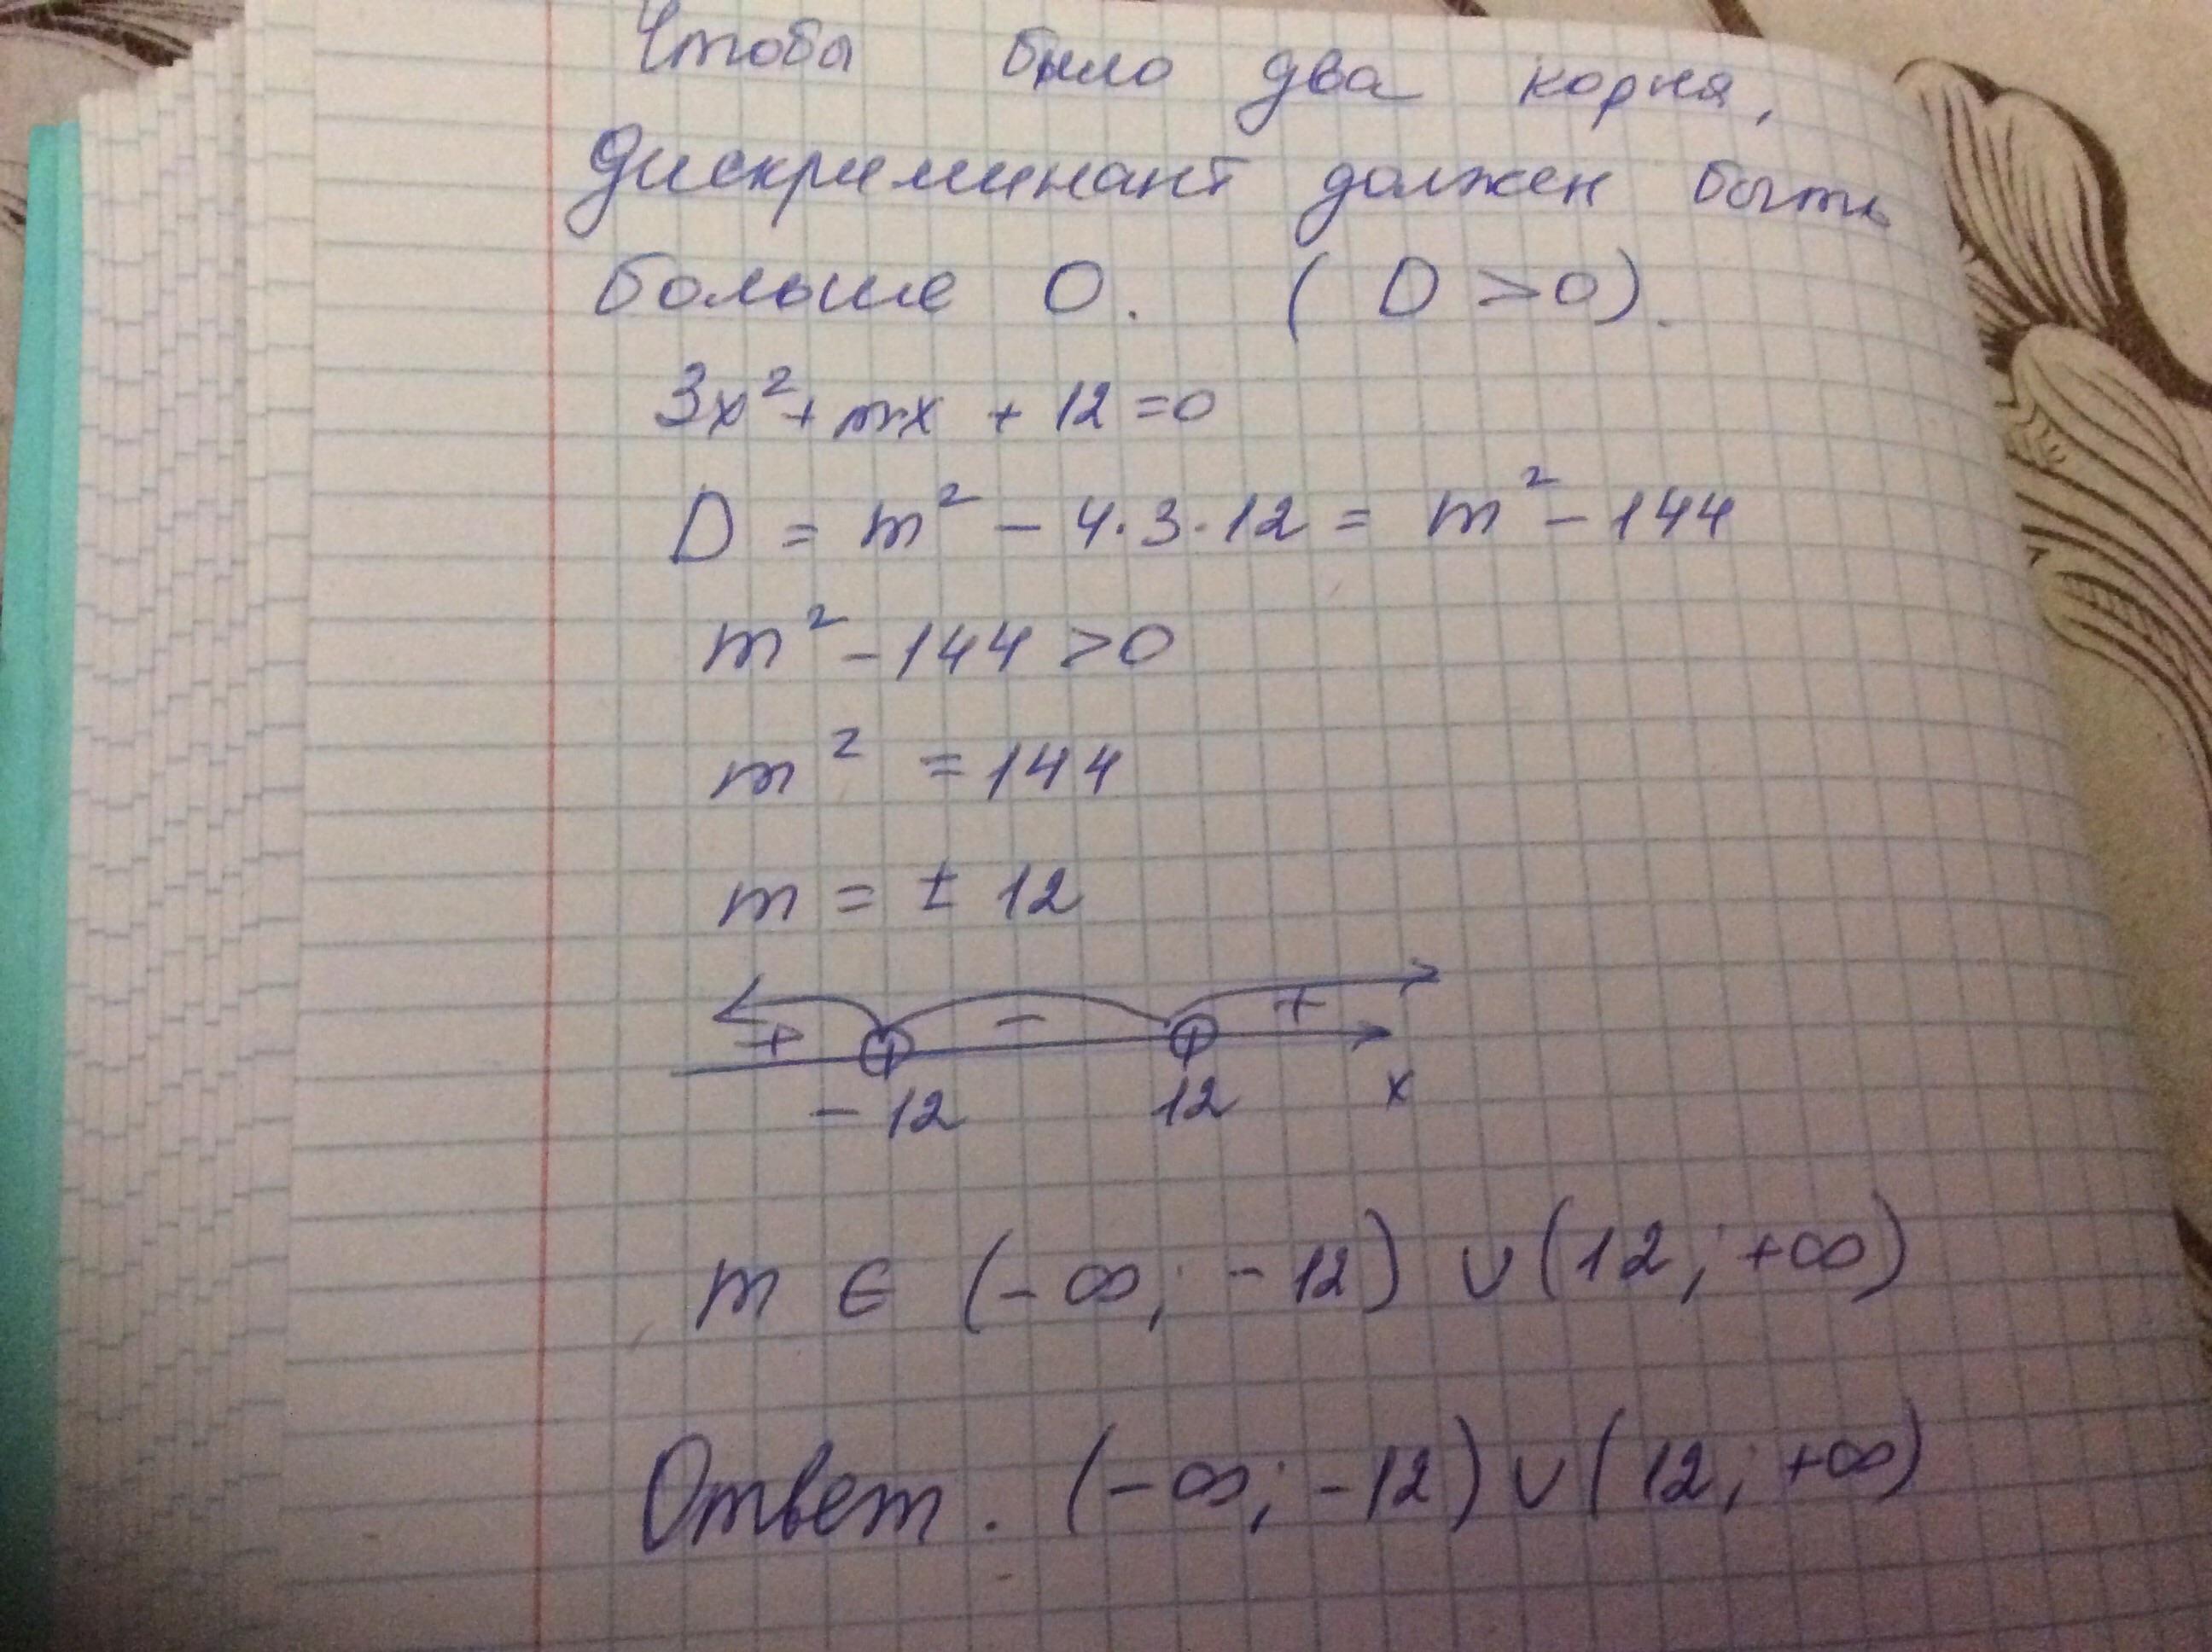 Чтобы было два корня,
дискриминант должен быть
больше 0. (D > 0).
3x² + mx + 12 = 0
D = m² - 4·3·12 = m² - 144
m² - 144 > 0
m² = 144
m = ± 12
+ - +
-12 12 x
m ∈ (-∞; -12) ∪ (12; +∞)
Ответ. (-∞; -12) ∪ (12; +∞)